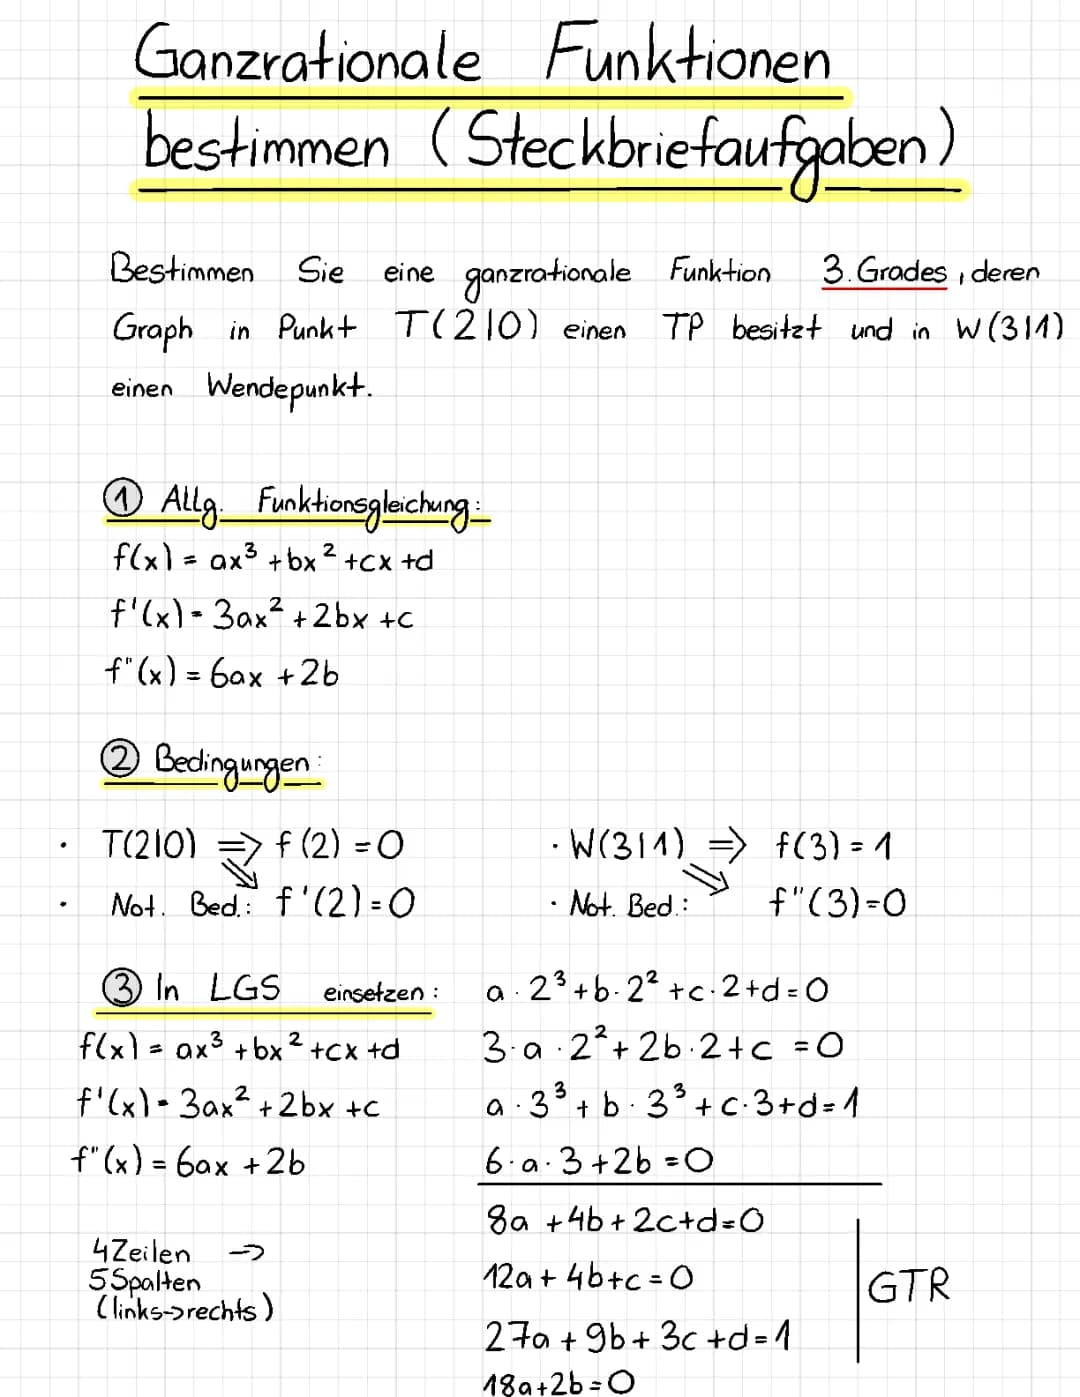 Ganzrationale Funktionen
bestimmen (Steckbriefaufgaben)
Bestimmen Sie eine ganzrationale Funktion 3. Grades, deren
Graph in Punkt T(2|0) einen TP besitzt und in W(3|1)
einen Wendepunkt.
① Allg. Funktionsgleichung:
f(x) = ax³ + bx² + cx + d
f'(x) = 3ax² + 2bx + c
f"(x) = 6ax + 2b
② Bedingungen:
· T(2|0) ⇒ f(2) = 0
⇘
· Not. Bed.: f'(2) = 0
· W(3|1) ⇒ f(3) = 1
⇘
· Not. Bed.: f"(3) = 0
③ In LGS einsetzen:
f(x) = ax³ + bx² + cx + d
f'(x) = 3ax² + 2bx + c
f"(x) = 6ax + 2b
4 Zeilen →
5 Spalten
(links → rechts)
a · 2³ + b · 2² + c · 2 + d = 0
3 · a · 2² + 2b · 2 + c = 0
a · 3³ + b · 3³ + c · 3 + d = 1
6 · a · 3 + 2b = 0
8a + 4b + 2c + d = 0
12a + 4b + c = 0
27a + 9b + 3c + d = 1
18a + 2b = 0
GTR